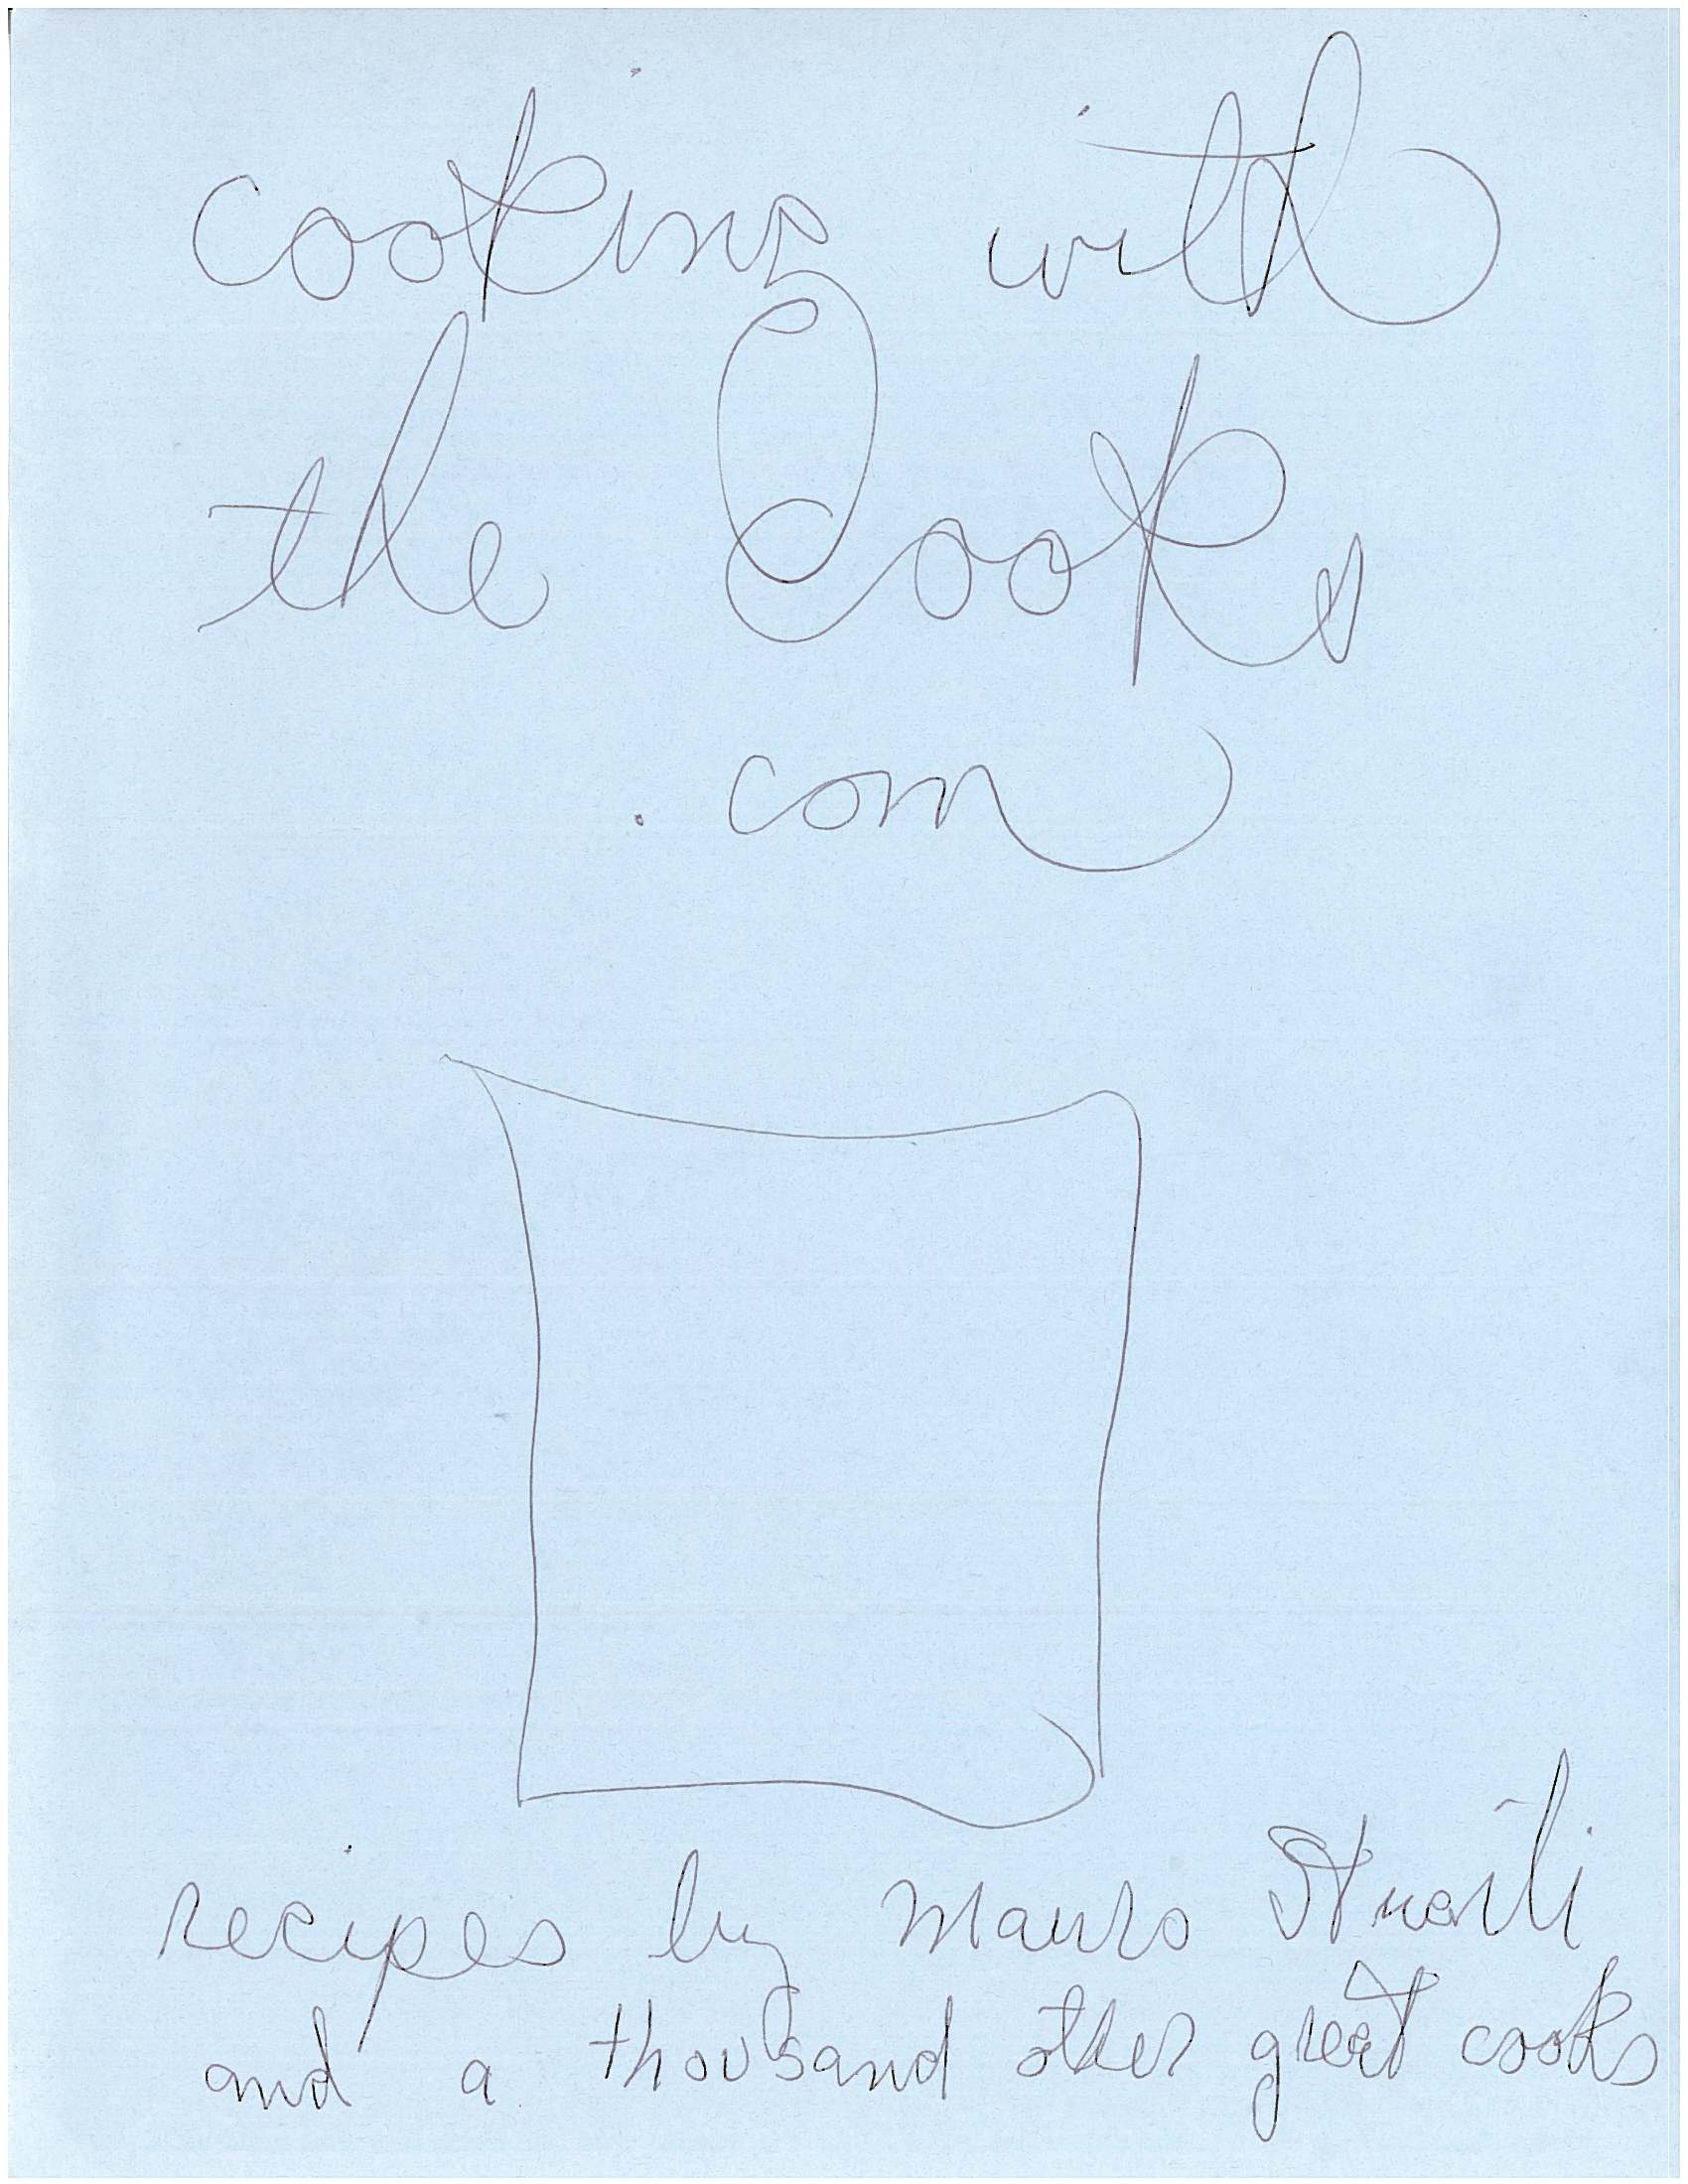 cooking with
the Cooks
.com
recipes by Mauro
and a thousand other great cooks